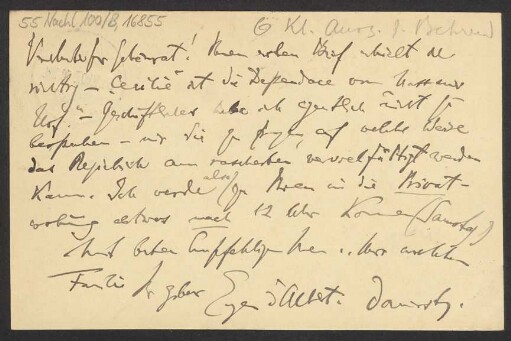 55 Nachl 100/B, 16855
Kl. Ausz. f. Behrend
Verehrter Geheimrat! Ihren ersten Brief erhielt ich
richtig – "Cecilie" ist die Dependance vom Nassauer
Hof." – Geschäftliches habe ich eigentlich nicht zu
besprechen – nur Sie zu fragen, auf welche Weise
das Regiebuch am raschesten vervielfältigt werden
kann. Ich werde also zu Ihnen in die Privat-
wohnung etwas nach 12 Uhr kommen (Samstag)
Mit besten Empfehlungen Ihnen u. Ihrer
Familie Ihr Eugen d'Albert. Donnerstg.